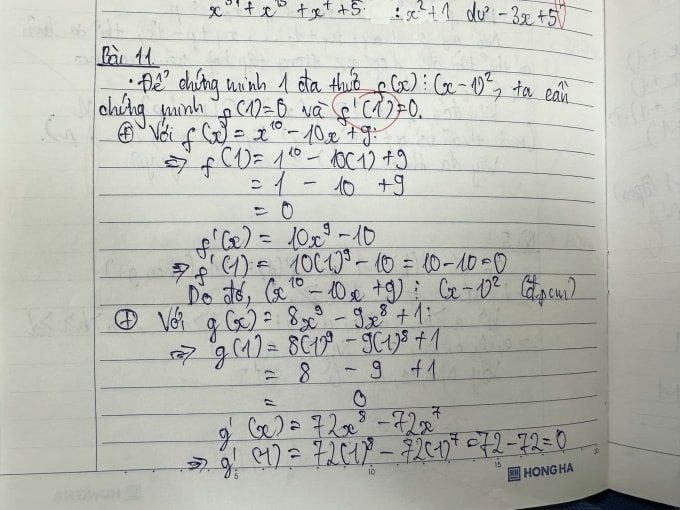 x³¹ + x¹⁵ + x⁷ + 5 : x² + 1 dư -3x + 5
Bài 11.
• Để chứng minh 1 đa thức f(x) ⋮ (x - 1)², ta cần
chứng minh f(1) = 0 và f'(1) = 0.
⊕ Với f(x) = x¹⁰ - 10x + 9:
⇒ f(1) = 1¹⁰ - 10(1) + 9
= 1 - 10 + 9
= 0
f'(x) = 10x⁹ - 10
⇒ f'(1) = 10(1)⁹ - 10 = 10 - 10 = 0
Do đó, (x¹⁰ - 10x + 9) ⋮ (x - 1)² (đpcm)
⊕ Với g(x) = 8x⁹ - 9x⁸ + 1:
⇒ g(1) = 8(1)⁹ - 9(1)⁸ + 1
= 8 - 9 + 1
= 0
g'(x) = 72x⁸ - 72x⁷
⇒ g'(1) = 72(1)⁸ - 72(1)⁷ = 72 - 72 = 0
5 10 15 20
HONG HA